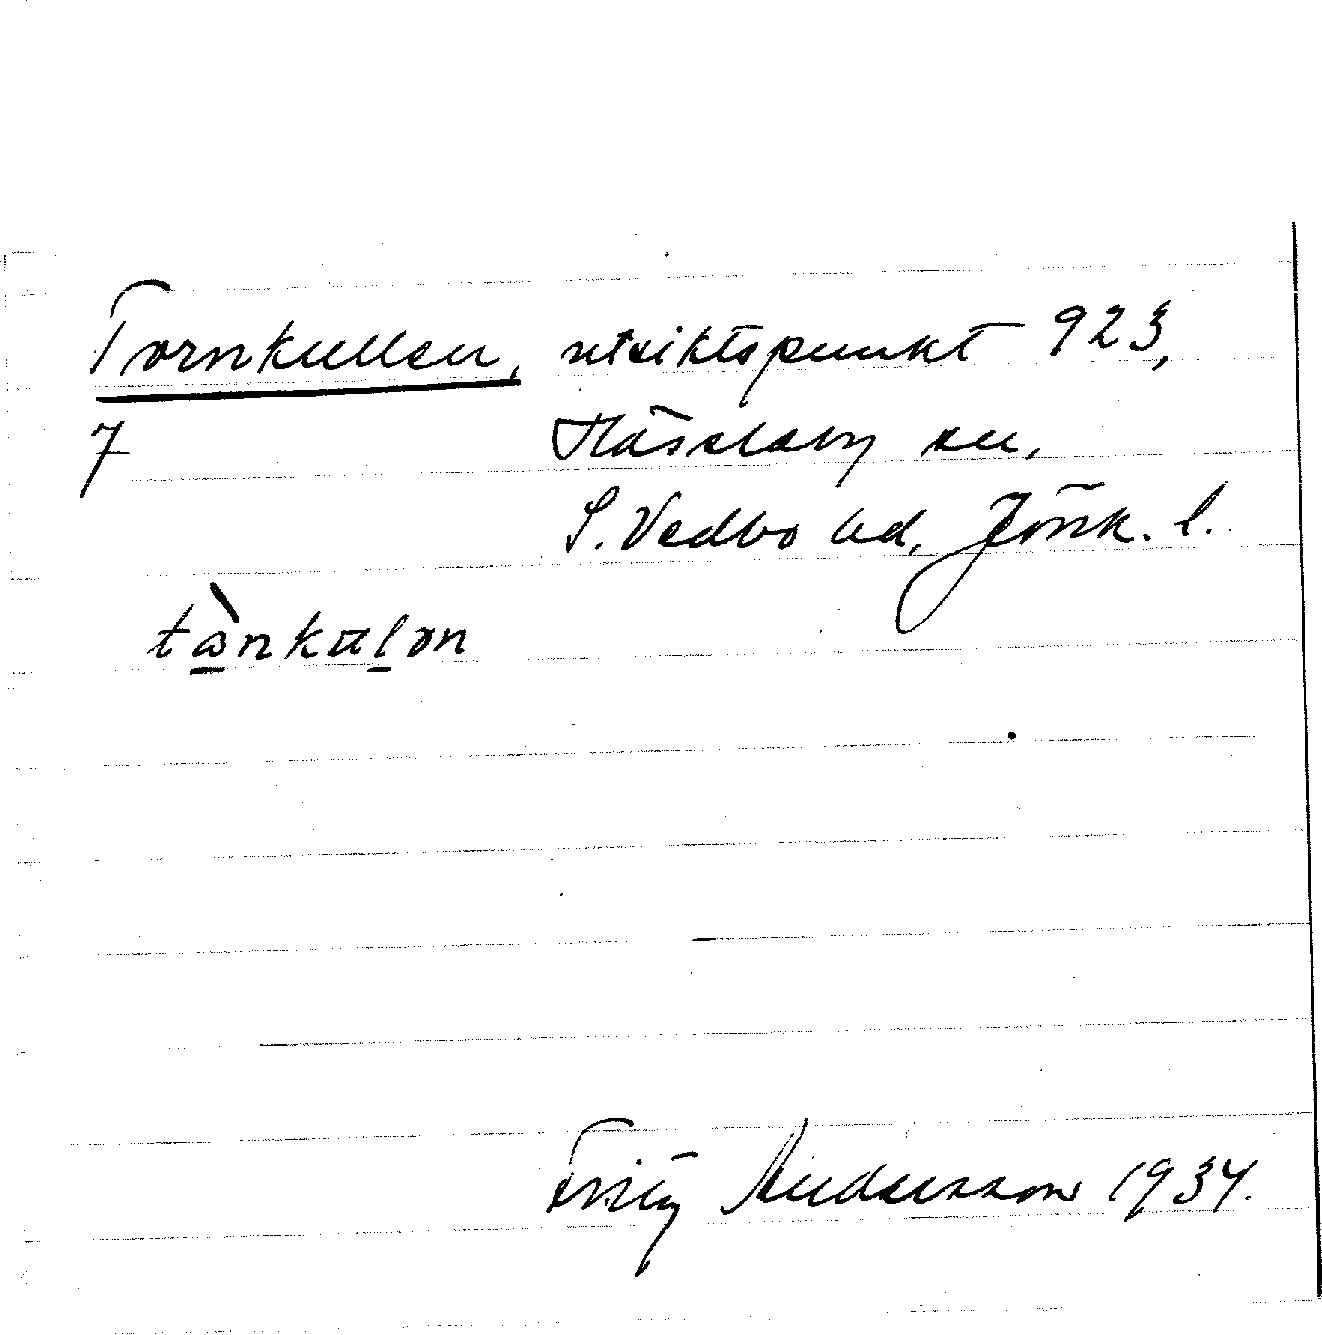 Tornkullen, utsiktspunkt 923,
7 Hässleby sn,
S. Vedbo hd, Jönk. l.
tànkulən
Fritz Andersson 1934.